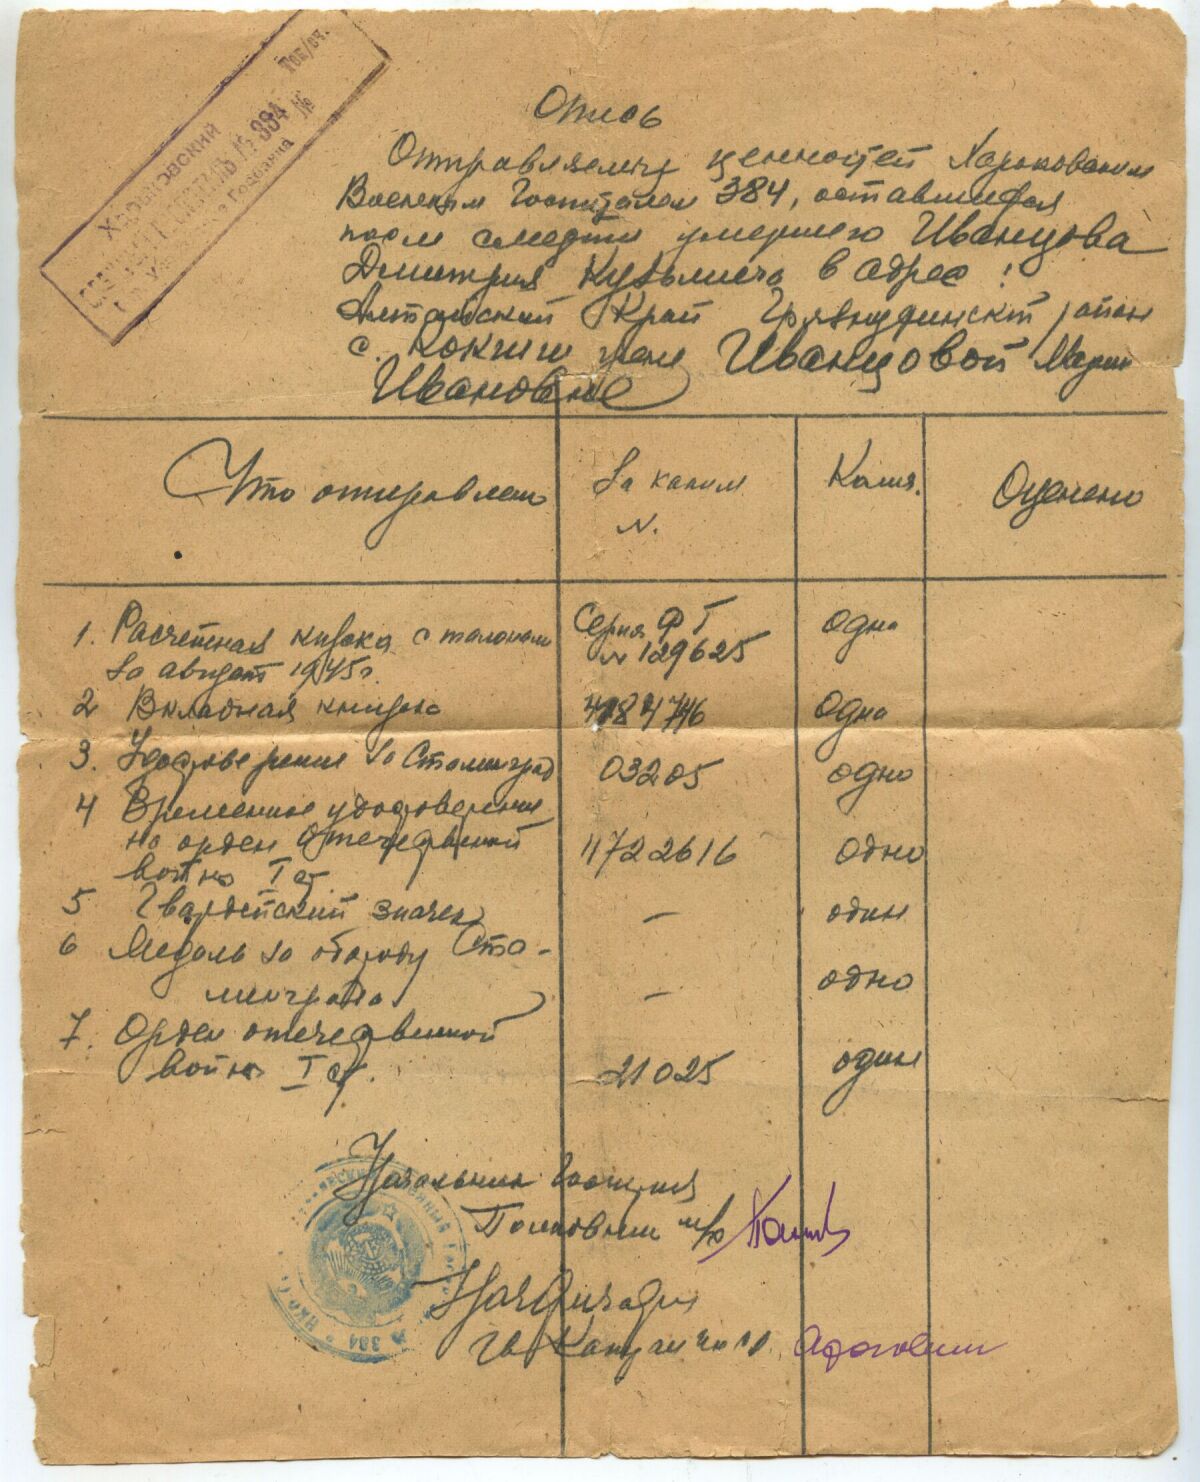 Харьковский
№ 384
Опись
Отправляемых ценностей Харьковским
Военным Госпиталем 384, оставшихся
после смерти умершего Иванцова
Дмитрия Кузьмича в адрес:
Алтайский Край район
с. Кокши жене Иванцовой Марии
Ивановне
Что отправлено
За каким
N.
Колич.
Оценено
1. Расчетная книжка с талонами
за август 1945г.
Серия ФТ
N 129625
одна
2 Вкладная книжка
одна
3. Удостоверение за Сталинград
03205
одно
4 Временное удостоверение
на орден Отечественной
войны I ст.
1722616
одно
5 Гвардейский значек
—
один
6 Медаль за оборону Ста-
линграда
—
одна
7. Орден отечественной
войны I ст.
21025
один
Начальник Госпиталя
Полковник м/с
НКО
384
Нач Финчасти
Гв Капитан